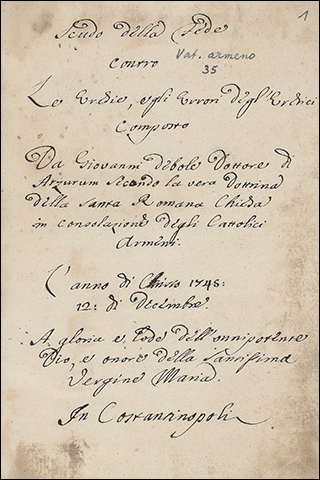 1
Scudo della Fede
Vat. armeno
35
contro
Le Eresie, e gli Errori degl'Eretici
Composto
Da Giovanni debole Dottore di
Arzurum Secondo la vera Dottrina
della Santa Romana Chiesa
in consolazione degli Cattolici
Armeni.
L'anno di Christo 1748:
12: di Decembre.
A gloria e, lode dell'onnipotente
Dio, e onore della Santissima
Vergine Maria.
In Costantinopoli